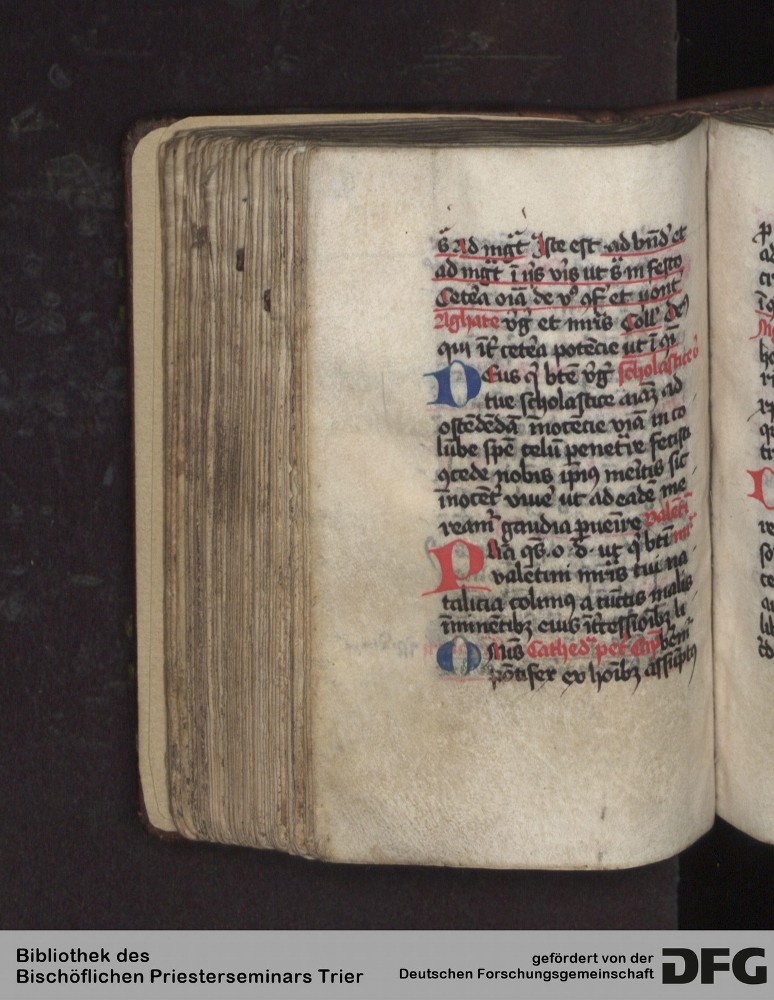 s̄ Ad mgᷓt Iste est ad bn̄d' et
ad mgᷓt ī ijs vīs ut s̄ in festo
Ceteᷓa oīa de v° ꝯf' et pont
Aghate vg̑ et mr̄is Coll' De9
qui īt' ceteᷓa potēcie ut ī
DEus q' btē vg̑ scholastice v'
tue scholastice aīaꝫ ad
ostēdēdā īnocēcie viā in co
lūbe spē celū penetᷓre fecisti
ꝯcede nobis ip̄iꝰ meritis sic
īnocēt' vive' ut ad eadē me
ream' gaudia ꝑueīre Valētī
PRa q̄s. o. d̄. ut q' btī mr̄
valētini mr̄is tui na
talicia colimꝰ a cūctis malis
īminētibꝫ eius ītcessioībꝫ li
Omīs Cathedᷓ petri Cap bem'
pōtifex ex hoībꝫ assūptꝰ
Bibliothek des
Bischöflichen Priesterseminars Trier
gefördert von der
Deutschen Forschungsgemeinschaft
DFG